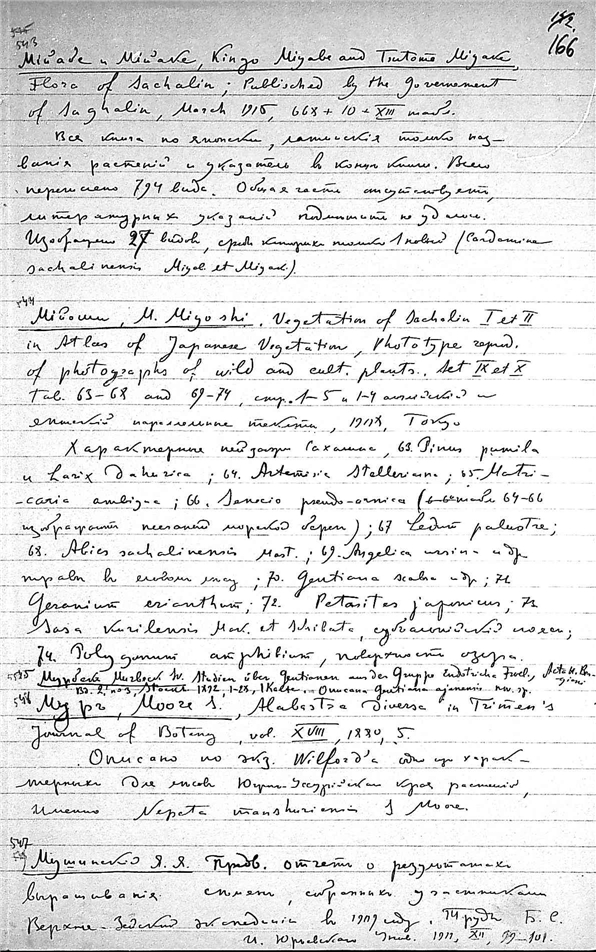 172.
166
543
Мияабе и Мияке, Kingo Miyabe and Tsutome Miyake,
Flora of Sachalin; Publisched by the Governement
of Saghalin, March 1915, 668 + 10 + XIII табл.
Вся книга по японски, латинския только наз-
вания растений и указатель в конце книги. Всего
перечислено 794 вида. Общая часть отсутствует,
литературных указаний подписать не удалось.
Изображено 27 видов, среди которых только 1 новый (Cardamine
sachalinensis Miyab. et Miyake).
544
Мийоши, M. Miyoshi. Vegetation of Sachalin I et II
in Atlas of Japanese Vegetation, Phototype reprod.
of photographs of wild and cult. plants. Set IX et X
Tab. 63-68 and 69-74, стр. 1-5 и 1-4 английский и
японский параллельные тексты, Tokyo
Характерные пейзажи Сахалина, 63. Pinus pumila
и Larix Dahurica; 64. Artemisia Stelleriana; 65. Matri-
-caria ambigua; 66. Senecio pseudo-arnica (64-66
изображают песчаный морской берег); 67 Ledum palustre;
68. Abies sachalinensis Mast.; 69. Angelica ursina и др.
травы в еловом лесу; 70. Gentiana scabra и др; 71
Geranium erianthum; 72. Petasites japonicus; 73
Sasa Kurilensis Mak. et Shibata, субальпийский пояс;
74. Polygonum amphibium, поверхность озера.
545 Мурбек Murbeck Sv. Studien über Gentianen aus der Gruppe Endotricha Froel., Acta H. Ber-
giani
Bd. 2. no 3, Stockh 1892, 1-28, 1 Karte. Описана Gentiana ajanensis nov. sp.
546 Мург, Moore S., Alabastra Diversa in Trimen's
Journal of Botany, vol. XVIII, 1880, 5.
Описано по экз. Wilford'а один из харак-
терных для лесов Южно-Уссурийского края растений,
именно Nepeta manshuriensis S Moore.
547
Мушинский Я. Я. Предв. отчет о результатах
выращивания семян, собранных участниками
Верхне-Зейской экспедиции в 1909 году. Труды Б. С.
И. Юрьевского Унив. 1911, XII 99-101.